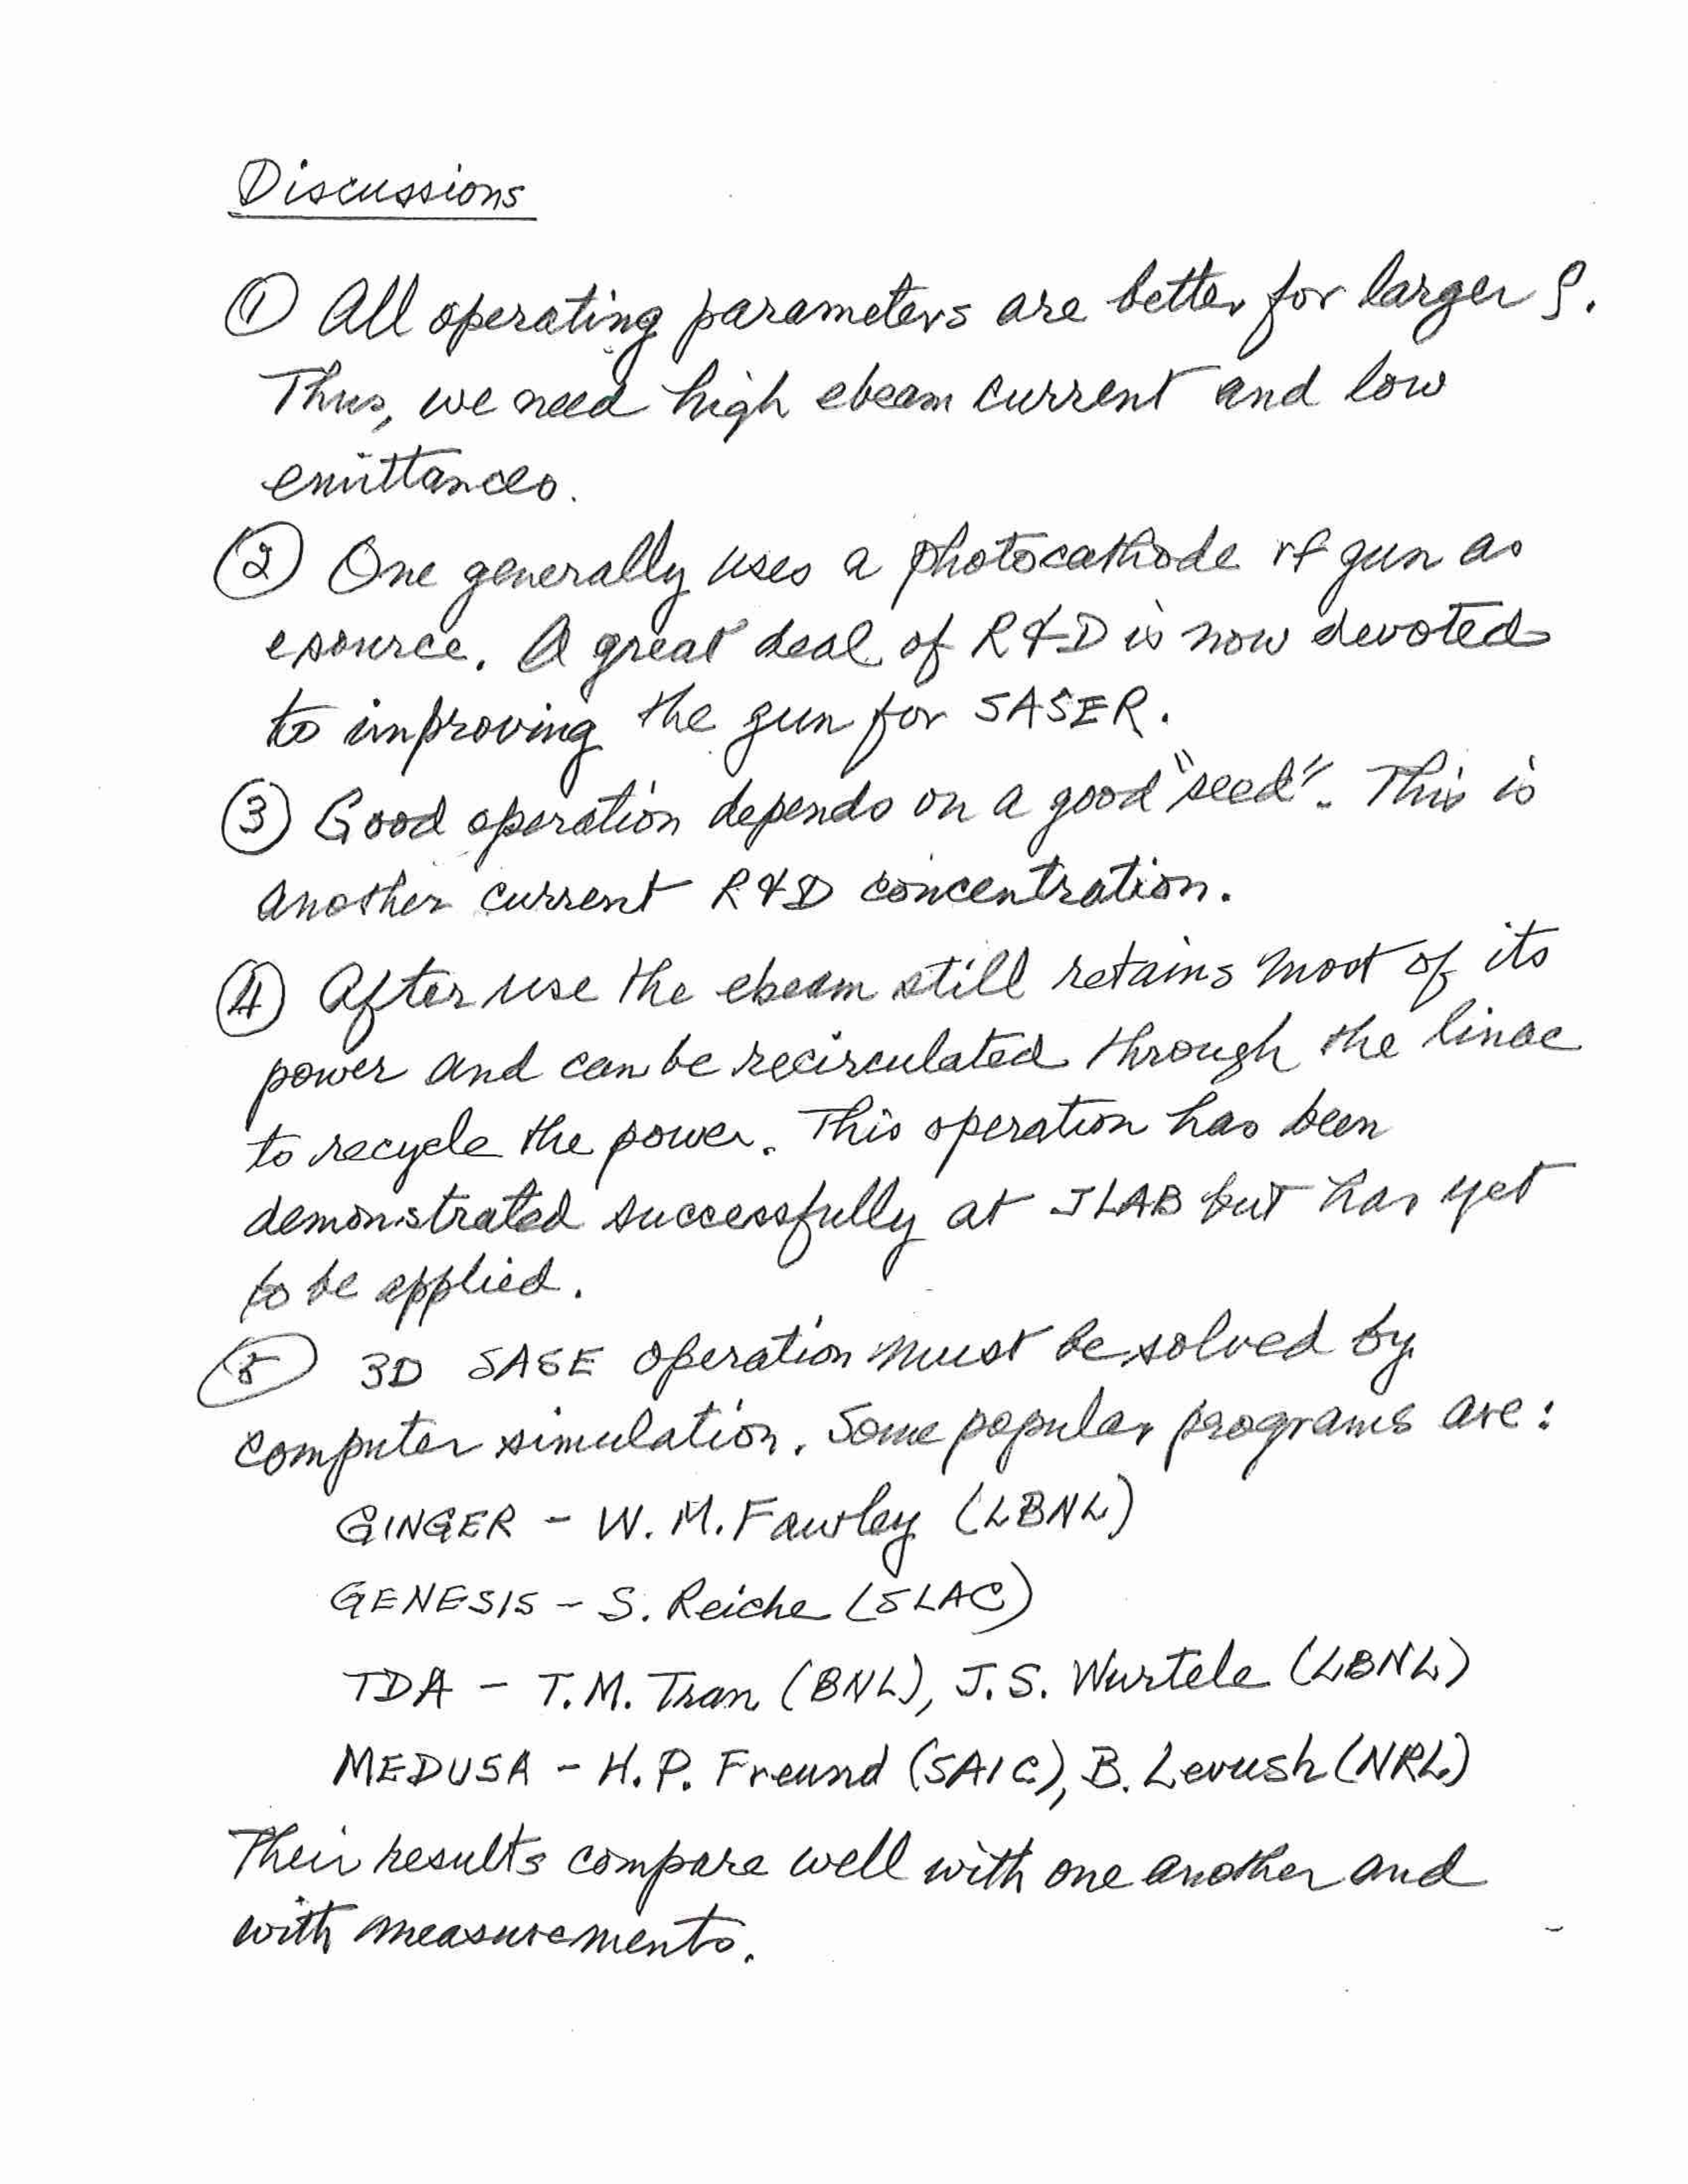 Discussions
① All operating parameters are better for larger ρ.
Thus, we need high ebeam current and low
emittances.
② One generally uses a photocathode rf gun as
esource. A great deal of R&D is now devoted
to improving the gun for SASER.
③ Good operation depends on a good "seed". This is
another current R&D concentration.
④ After use the ebeam still retains most of its
power and can be recirculated through the linac
to recycle the power. This operation has been
demonstrated successfully at JLAB but has yet
to be applied.
⑤ 3D SASE operation must be solved by
computer simulation. Some popular programs are:
GINGER - W. M. Fawley (LBNL)
GENESIS - S. Reiche (SLAC)
TDA - T.M. Tran (BNL), J.S. Wurtele (LBNL)
MEDUSA - H.P. Freund (SAIC), B. Levush (NRL)
Their results compare well with one another and
with measurements.